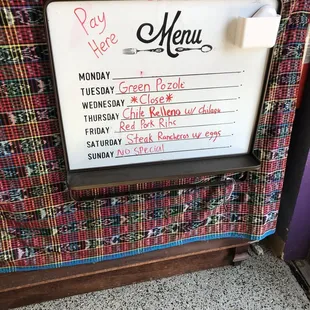 Pay
Here
Menu
MONDAY
TUESDAY Green Pozole
WEDNESDAY *Close*
THURSDAY Chile Relleno w/
FRIDAY Red Pork Ribs
SATURDAY Steak Rancheros w/ eggs
SUNDAY NO SPECIAL